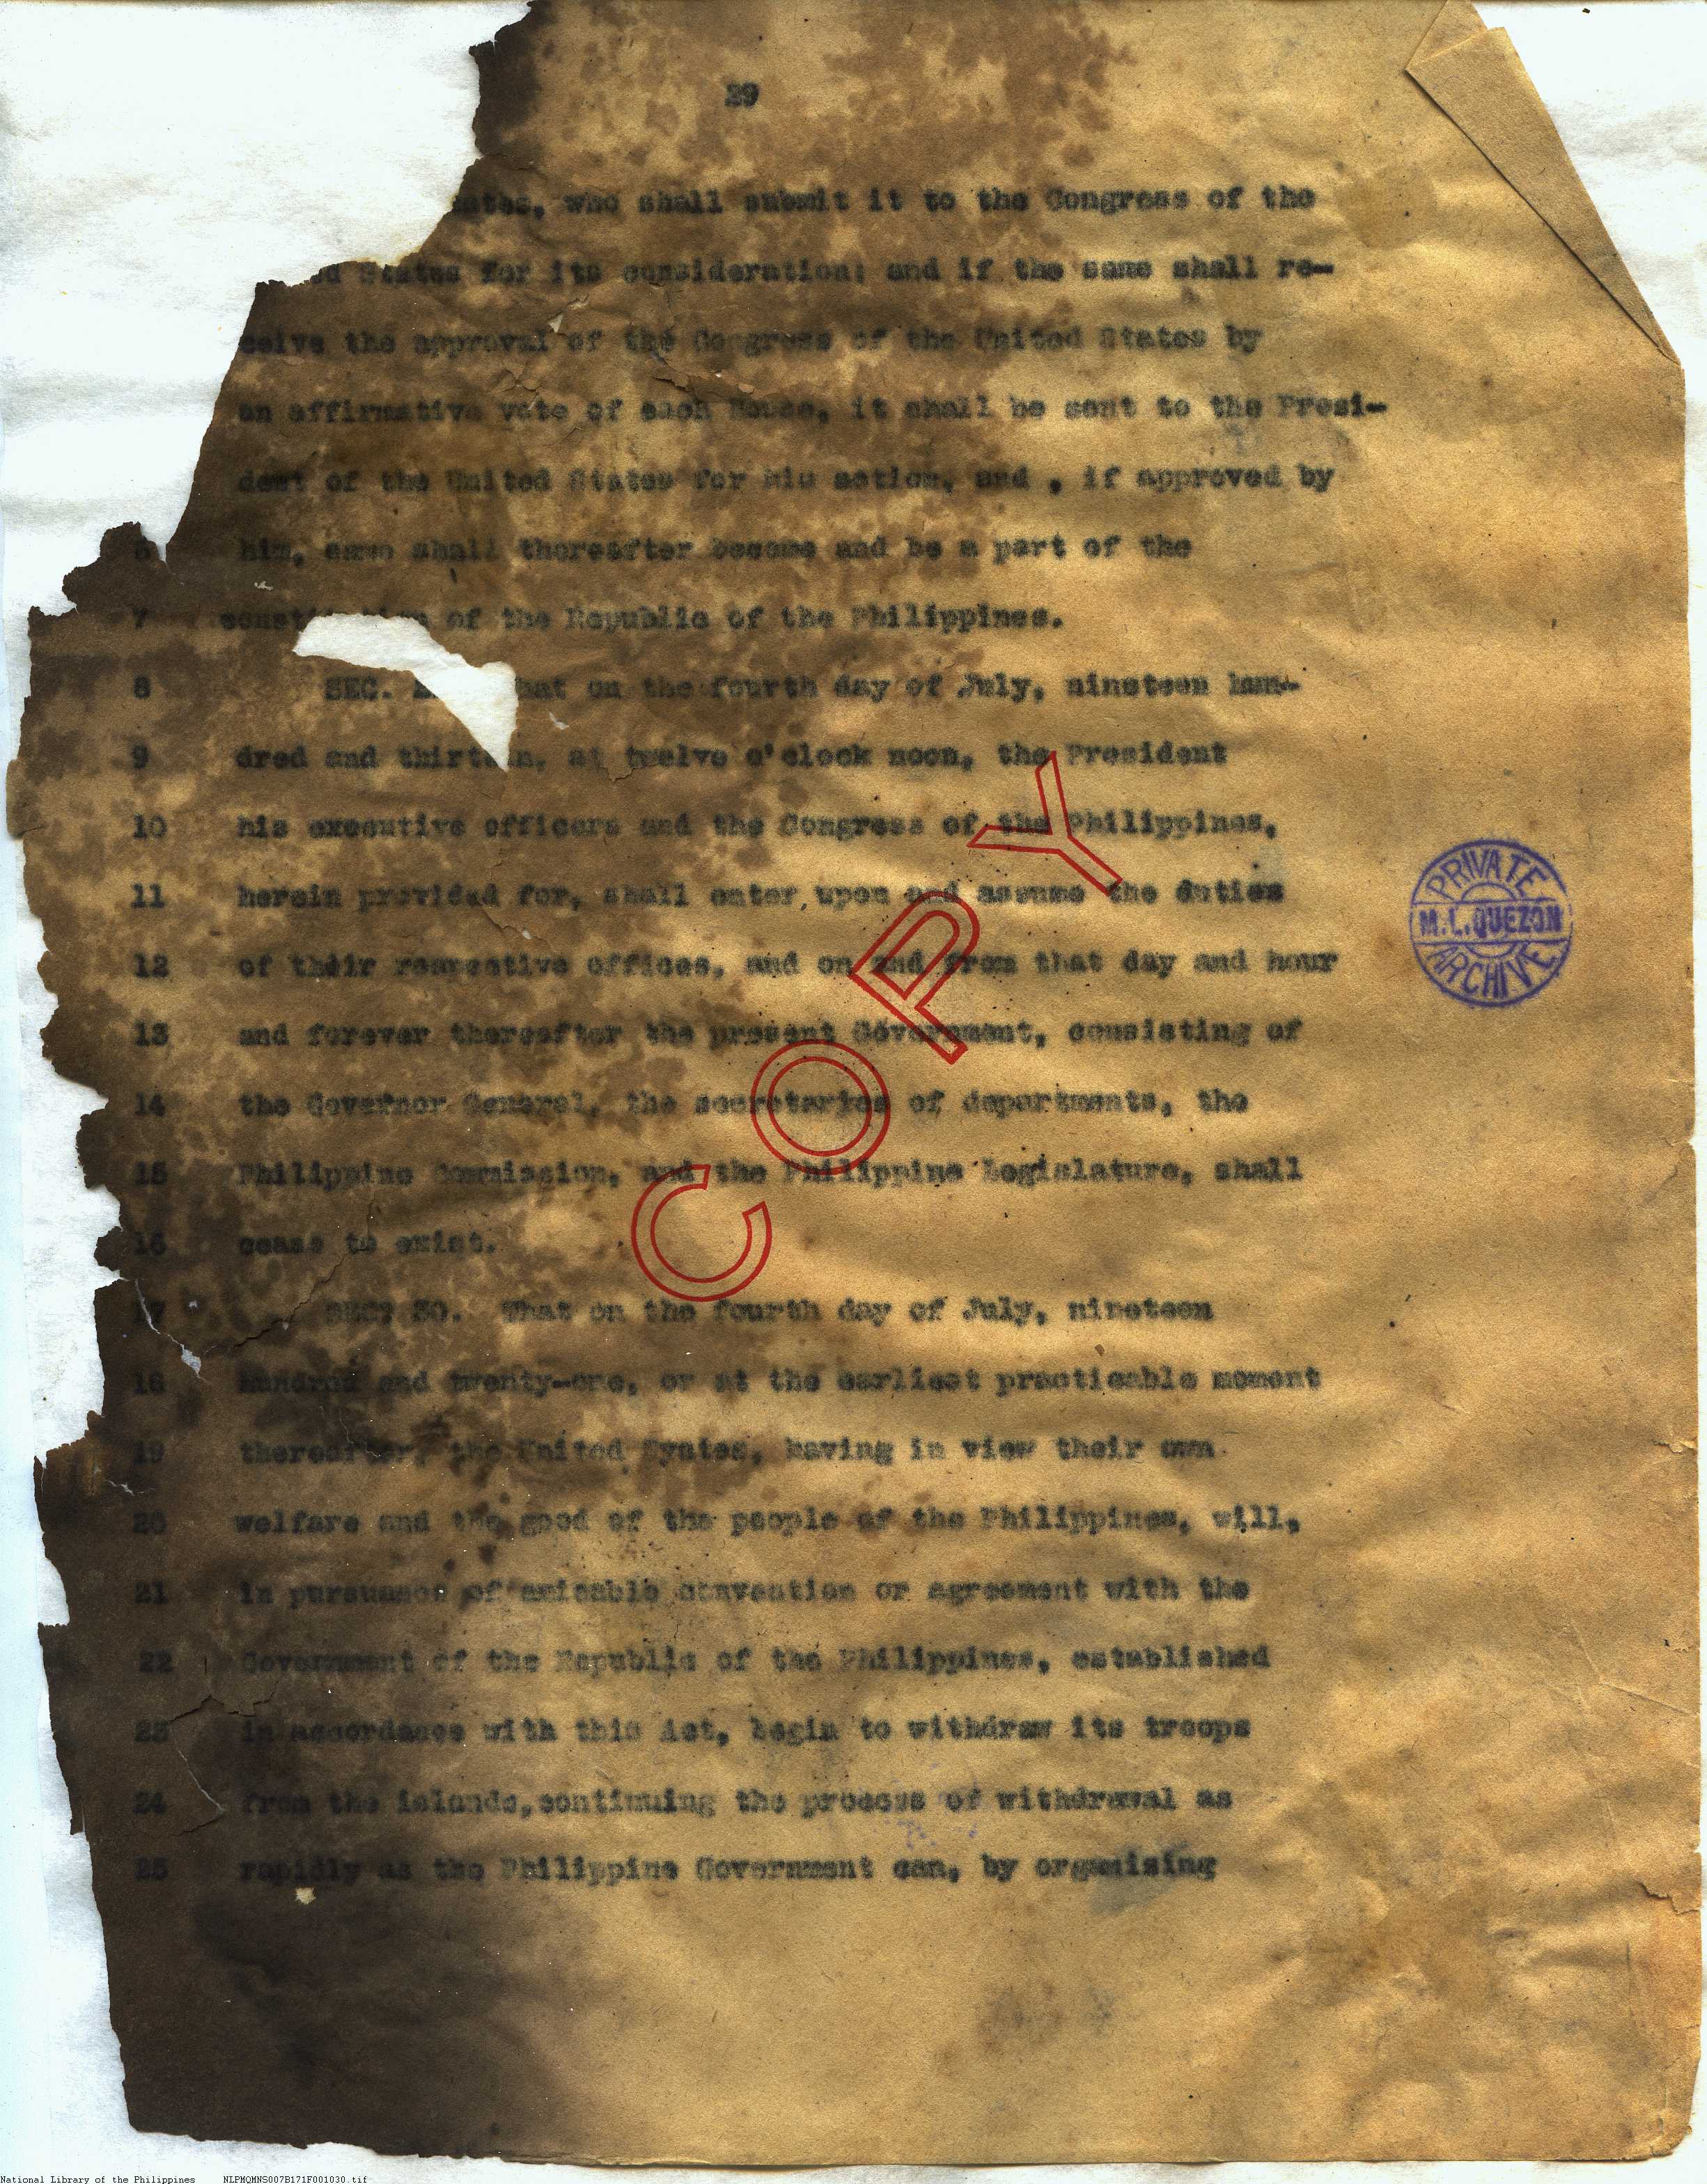 29
ates, who shall submit it to the Congress of the
d States for its consideration; and if the same shall re-
ceive the approval of the Congress of the United States by
an affirmative vote of each House, it shall be sent to the Presi-
dent of the United States for his action, and , if approved by
6 him, same shall thereafter become and be a part of the
7 const of the Republic of the Philippines.
8 SEC. hat on the fourth day of July, nineteen hun-
9 dred and thirteen, at twelve o'clock noon, the President
10 his executive officers and the Congress of the Philippines,
11 herein provided for, shall enter upon and assume the duties
12 of their respective offices, and on and from that day and hour
13 and forever thereafter the present Government, consisting of
14 the Governor General, the secretaries of departments, the
15 Philippine Commission, and the Philippine Legislature, shall
16 cease to exist.
17 SEC. 30. That on the fourth day of July, nineteen
18 hundred and twenty-one, or at the earliest practicable moment
19 thereafter, the United Syates, having in view their own
20 welfare and the good of the people of the Philippines, will,
21 in pursuance of amicable convention or agreement with the
22 Government of the Republic of the Philippines, established
23 in accordance with this Act, begin to withdraw its troops
24 from the islands,continuing the process of withdrawal as
25 rapidly as the Philippine Government can, by organising
COPY
PRIVATE
M.L.QUEZON
ARCHIVE
National Library of the Philippines NLPMQMNS007B171F001030.tif